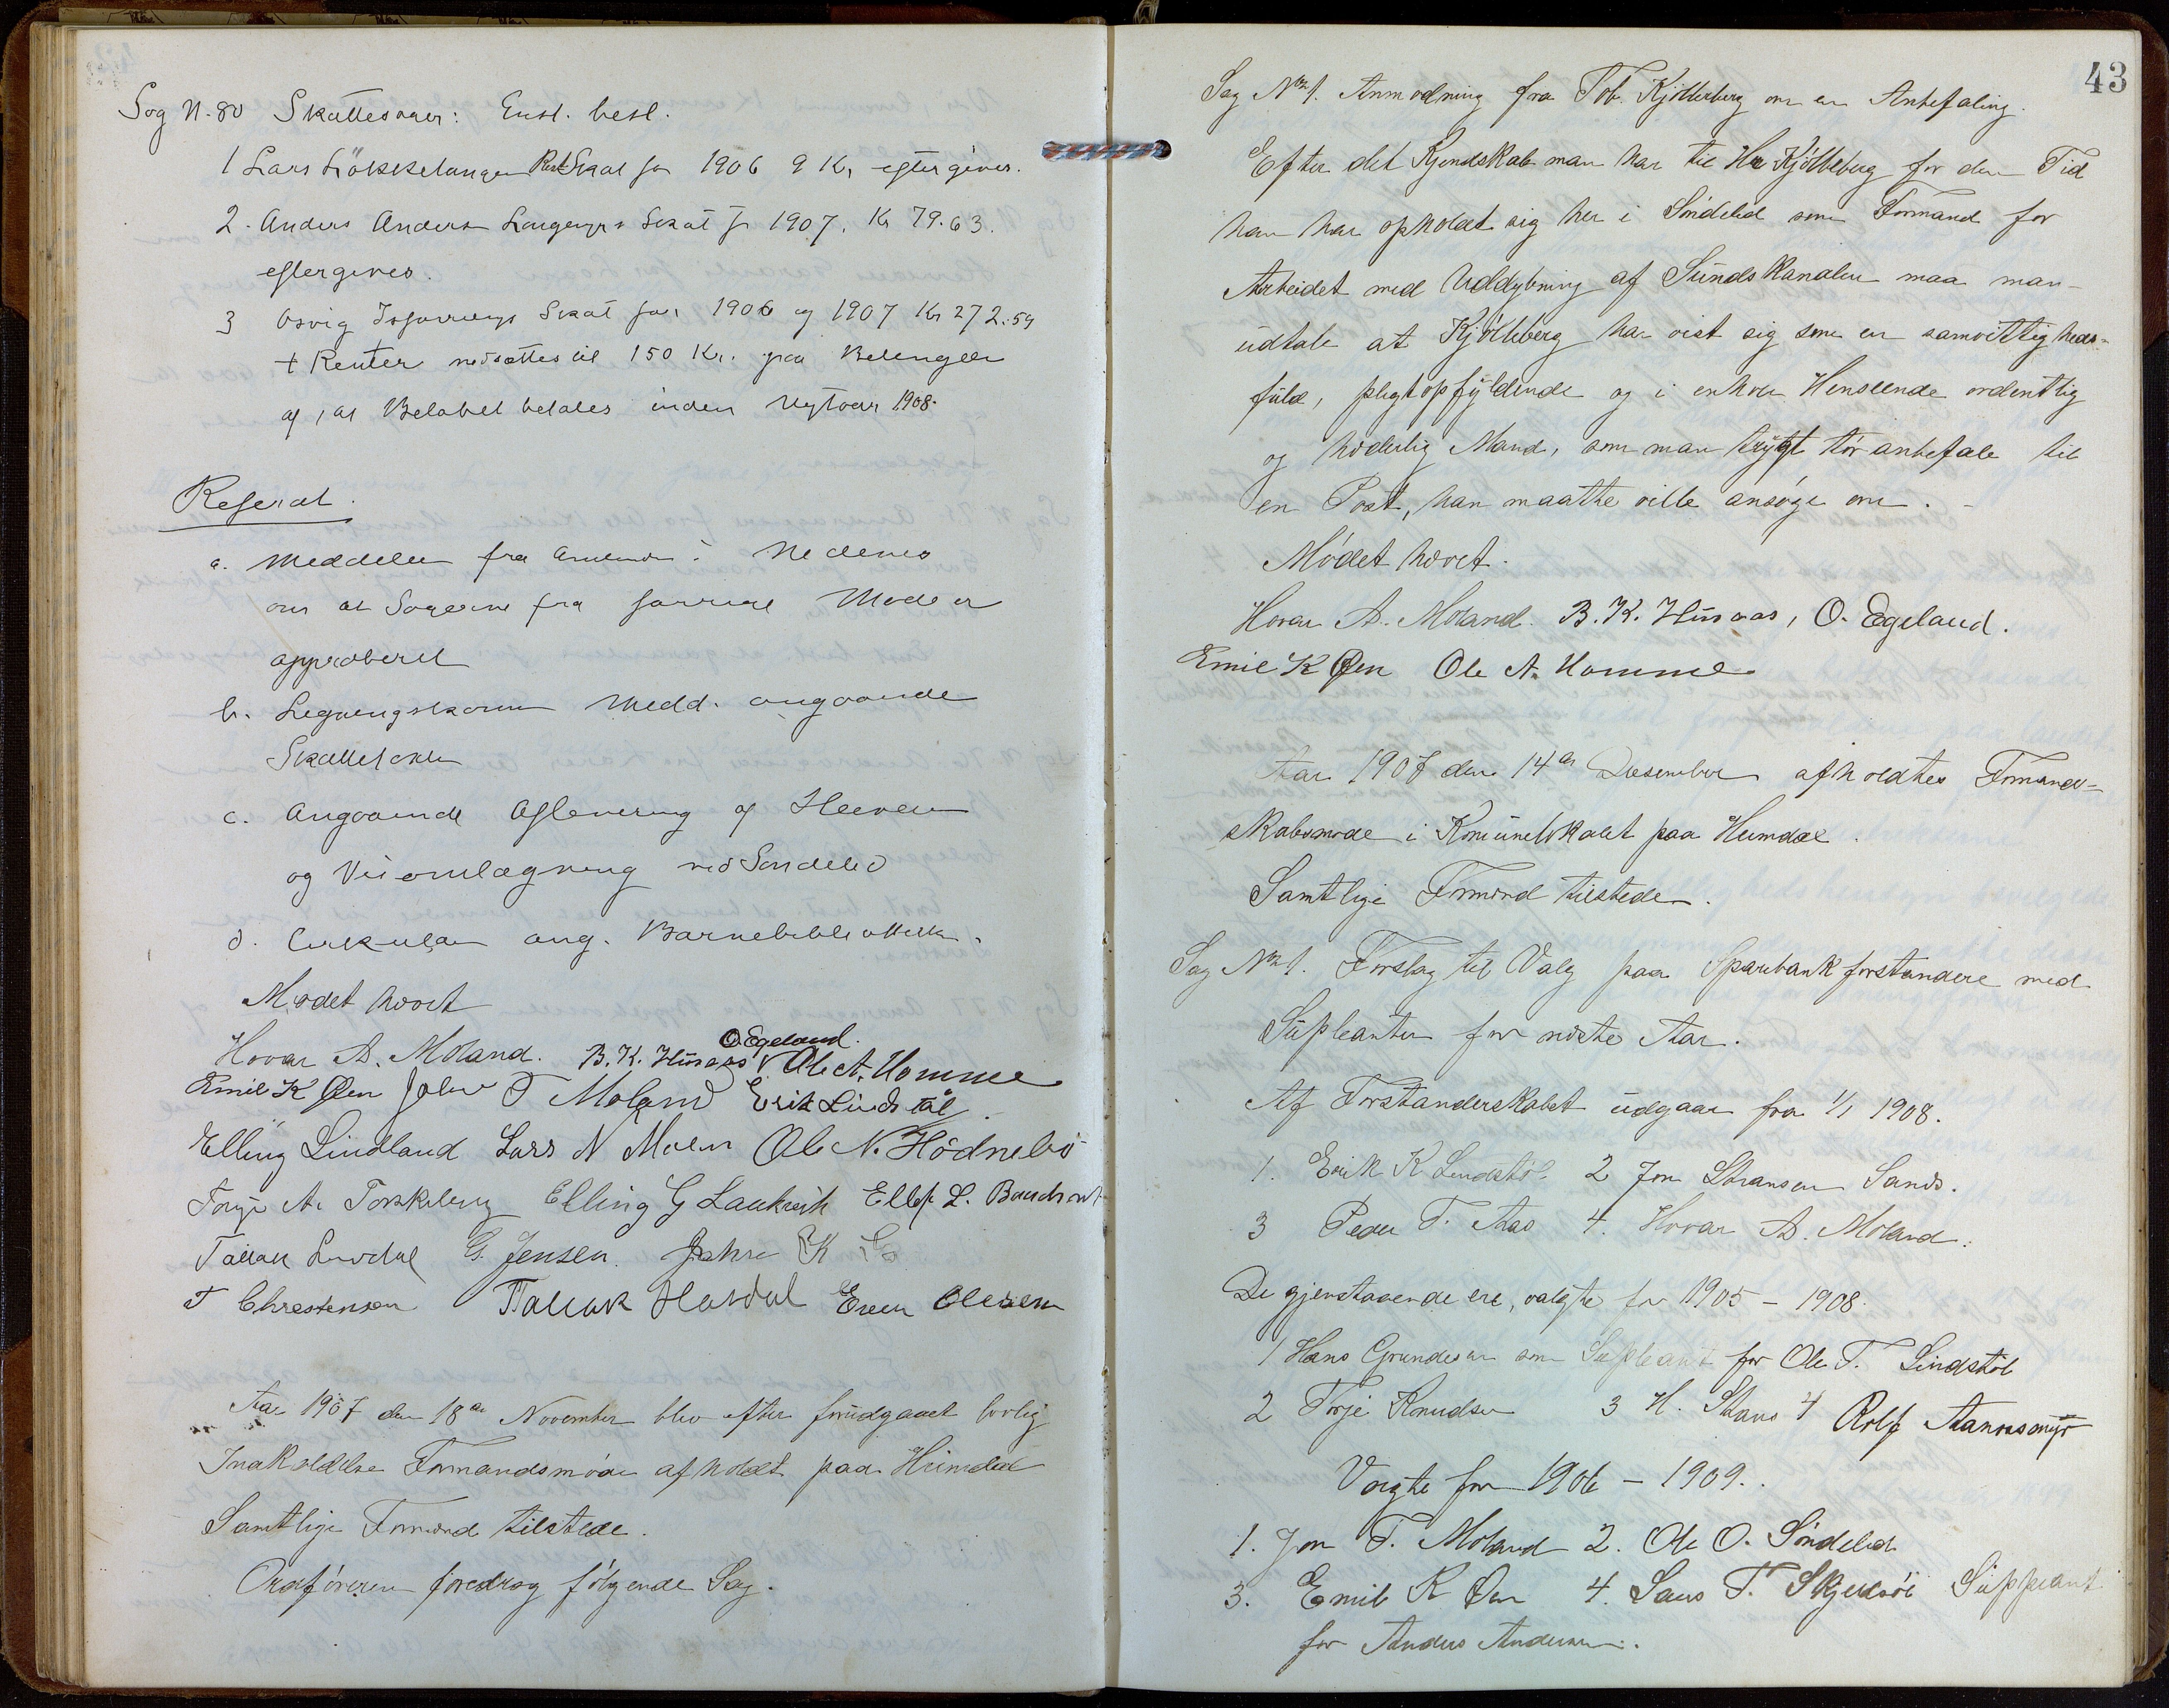 Sag N. 80 Skattesager: Enst. besl.
1 Lars Lökkelangen Rest Skat for 1906 9 Kr eftergives.
2. Anders Anders Langmyrs Skat f 1907. Kr 79.63.
eftergives.
3 Osvig Isforrengs Skat for 1906 og 1907 Kr 272.59
+ Renter nedsættes til 150 Kr. paa Betingelse
af, at Beløbet betales inden Nytaar 1908.
Referat.
a. Meddelelse fra Amtmanden i Nedenes
om at Sagerne fra forrige Møde er
approberet
b. Ligningskomm Medd. angaaende
Skattetakster
c. Angaaende Aflevering af Heiveien
og Veiomlægning ved Søndeled
d. Cirkulær ang. Barnebibliotheker.
Mødet hævet
O. Egeland.
Hovar A. Moland. B. K. Husaas Ole A. Homme
Emil K Øen John T Moland Erik Lindstøl
Elling Lindland Lars N Moen Ole N. Hödnebö
Torje A. Torskeberg Elling G Laukvik Ellef L. Bandsund
Tallak Lindal G. Jensen. John K
T Chrestensen Tallak Hasdal Even Olesen
Aar 1907 den 18de November blev efter forudgaaet lovlig
Indkaldelse Formandsmøde afholdt paa Heimdal
Samtlige Formænd tilstede.
Ordføreren foredrog følgende Sag.
43
Sag No 1. Anmodning fra Tob. Kjølleberg om en Anbefaling.
Efter det Kjendskab man har til Hr Kjølleberg for den Tid
han har opholdt sig her i Søndeled som Formand for
Arbeidet med Uddybning af Sundskanalen maa man
udtale at Kjølleberg har vist sig som en samvittigheds-
fuld, pligtopfyldende og i enhver Henseende ordentlig
og hæderlig Mand, som man trygt tør anbefale til
en Post, han maatte ville ansøge om. -
Mødet hævet.
Hovar A. Moland. B. K. Husaas, O. Egeland.
Emil K Øen Ole A. Homme
Aar 1907 den 14de Desember afholdtes Formand-
skabsmøde i Komunelokalet paa Heimdal.
Samtlige Formænd tilstede.
Sag No 1. Forslag til Valg paa Sparebankforstandere med
Supleanter for næste Aar.
Af Forstanderskabet udgaar fra 1/1 1908.
1. Erik K Lindstøl 2 Jon Stiansen Sands.
3 Peder T. Aas 4. Hovar A. Moland.
De gjenstaaende ere, valgte for 1905 - 1908.
1 Hans Gundersen som Supleant for Ole T. Lindstøl
2 Torje Knudsen 3 H. Stans 4 Rolf Aanonsmyr
Valgte for 1906 - 1909.
1. Jon T. Moland 2. Ole O. Søndeled
3. Emil K Øen 4. Lars T. Skjeldsøe Suppleant
for Anders Andersen.